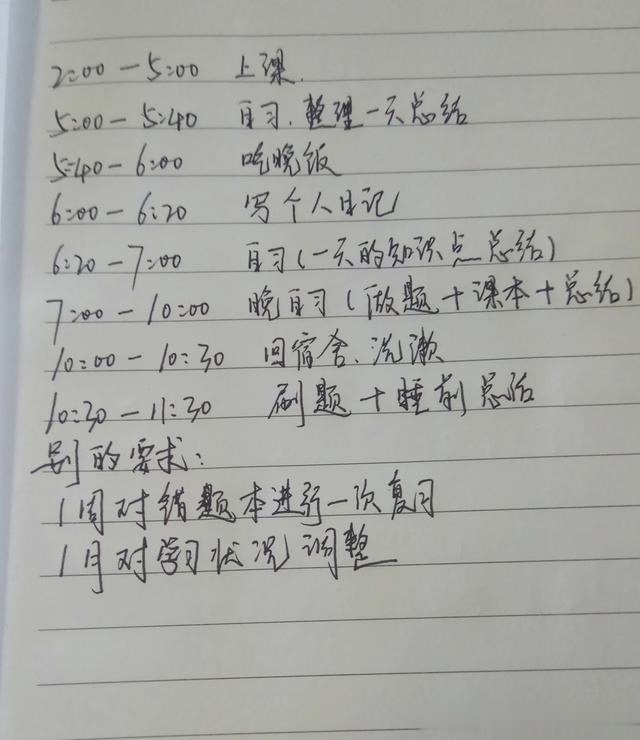 2:00-5:00 上课.
5:00-5:40 自习.整理一天总结
5:40-6:00 吃晚饭
6:00-6:20 写个人日记
6:20-7:00 自习(一天的知识点总结)
7:00-10:00 晚自习(做题+课本+总结)
10:00-10:30 回宿舍.洗漱
10:30-11:30 刷题+睡前总结
别的要求:
1周对错题本进行一次复习
1月对学习状况调整